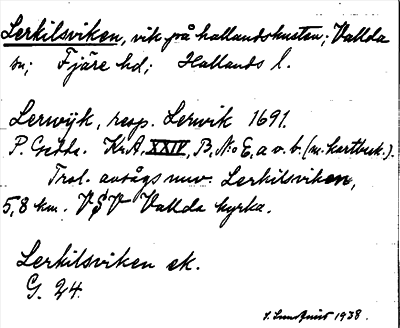 Lerkilsviken, vik på hallandskusten; Vallda
sn; Fjäre hd; Hallands l.
Lerwÿk, resp. Lerwik 1691.
P. Gedda. KrA, XXIV, B, No E, a o. b. (m. kartbesk.).
Trol. avsågs nuv. Lerkilsviken,
5,8 km. VSV Vallda kyrka.
Lerkilsviken ek.
G. 24.
1938.